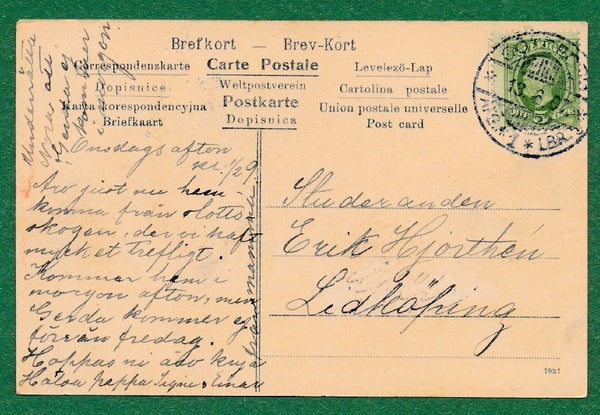 Brefkort — Brev-Kort
Correspondenzkarte Carte Postale Levelezö-Lap
Dopisnice Weltpostverein Cartolina postale
Karta korespondencyjna Postkarte Union postale universelle
Briefkaart Dopisnica Post card
Underrätta
Nora att
Gerda ej
kommer
i morgon
Onsdags afton
kl. 1/2 9.
Äro just nu hem-
komna från slotts
skogen, der vi haft
mycket trefligt.
Kommer hem i
morgon afton, men
Gerda kommer ej
förrän fredag.
Hoppas ni äro krya
Hälsa pappa Signe & Einar
från mamma
Studeranden
Erik Hjorthén
Lidköping
1 * LBR
1981